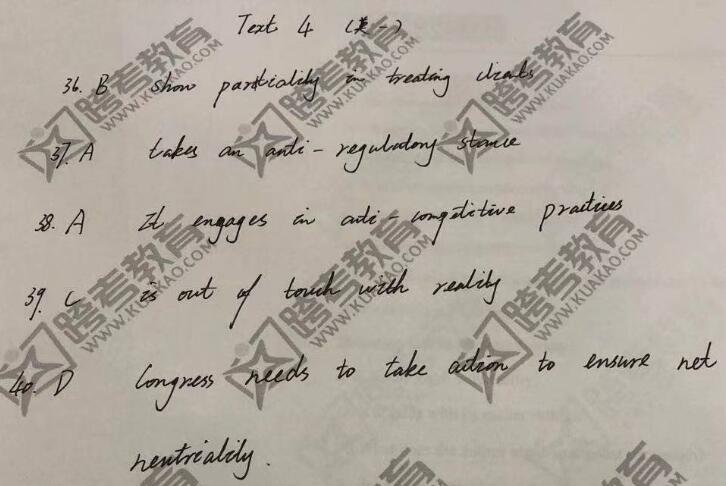 Text 4 (英一)
36. B show partiality in treating clients
37. A takes an anti-regulatory stance
38. A It engages in anti-competitive practices
39. C is out of touch with reality
40. D Congress needs to take action to ensure net
neutriality.
跨考教育
WWW.KUAKAO.COM
跨考教育
WWW.KUAKAO.COM
跨考教育
WWW.KUAKAO.COM
跨考教育
WWW.KUAKAO.COM
跨考教育
WWW.KUAKAO.COM
跨考教育
WWW.KUAKAO.COM